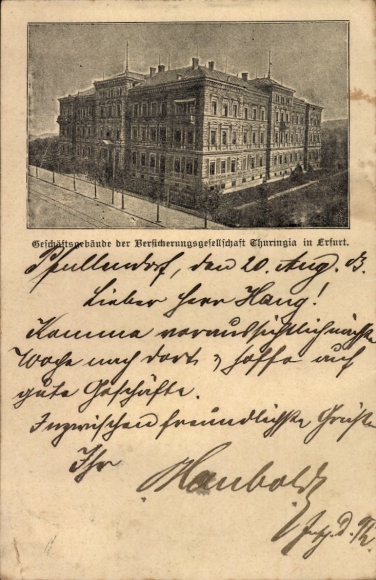 Geschäftsgebäude der Versicherungsgesellschaft Thuringia in Erfurt.
Pfullendorf, den 20. Aug. 
Lieber Herr Haug!
Komme voraussichtlich nächste
Woche nach dort & hoffe auf
gute Geschäfte.
Inzwischen freundlichste Grüße
Ihr
Haubold